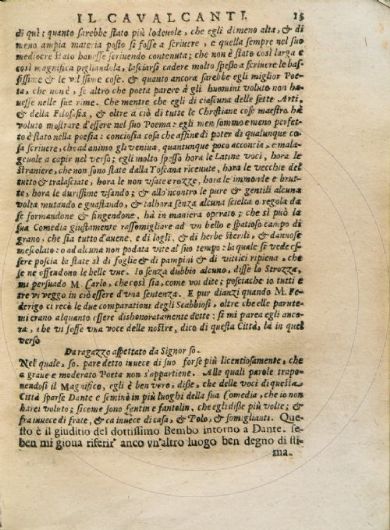 IL CAVALCANTI. 15
di què; quanto sarebbe stato più lodevole, che egli di meno alta, & di
meno ampia materia posto si fosse a scriuere, e quella sempre nel suo
mediocre stato hauesse scriuendo contenuta; che non è stato cosi larga e
cosi magnifica pigliandola, lasciarsi cadere molto spesso a scriuere le bas-
sissime & le vilissime cose. & quanto ancora sarebbe egli miglior Poe-
ta, che non è, se altro che poeta parere à gli huomini voluto non ha-
uesse nelle sue rime. Che mentre che egli di ciascuna delle sette Arti,
& della Filosofia, & oltre a ciò di tutte le Christiane cose maestro hà
voluto mostrar d'essere nel suo Poema: egli men sommo e meno perfet-
to è stato nella poesia: conciosia cosa che affine di poter di qualunque co-
sa scriuere, che ad animo gli veniua, quantunque poco acconcia, e mala-
geuole a capir nel verso; egli molto spesso hora le Latine voci, hora le
straniere, che non sono state dalla Toscana riceuute, hora le vecchie del
tutto & tralasciate, hora le non vsate e rozze, hora le immonde e brut-
te, hora le durissime vsando; & all'incontro le pure & gentili alcuna
volta mutando e guastando, & talhora senza alcuna scielta o regola da
se formandone & fingendone, hà in maniera operato; che si può la
sua Comedia giustamente rassomigliare ad vn bello e spatioso campo di
grano, che sia tutto d'auene, e di logli, & di herbe sterili, & dannose
mescolato: o ad alcuna non potada vite al suo tempo: la quale si vede es-
sere poscia la state sì di foglie & di pampini & di viticci ripiena, che
se ne offendono le belle vue. Io senza dubbio alcuno, disse lo Strozza,
mi persuado M. Carlo, che cosi sia, come voi dite; poscia che io tutti e
tre vi veggo in ciò essere d'vna sentenza. E pur dianzi quando M. Fe-
derigo ci recò le due comparationi degli Scabbiosi, oltre che elle parute
mi erano alquanto essere dishonoratamente dette: si mi parea egli anco-
ra, che vi fosse vna voce delle nostre, dico di questa Città, là in quel
verso
Da ragazzo aspettato da Signor so.
Nel quale, so. pare detto inuece di suo forse più licentiosamente, che
a graue e moderato Poeta non s'appartiene. Alle quali parole trapo-
nendosi il Magnifico, egli è ben vero, disse, che delle voci di questa
Città sparse Dante e seminò in più luoghi della sua Comedia, che io non
harei voluto; sicome sono fantin e fantolin, che egli disse più volte; &
fra inuece di frate, & ca inuece di casa, & Polo, & somiglianti. Que-
sto è il giuditio del dottissimo Bembo intorno a Dante. se-
ben mi gioua riferir' anco vn'altro luogo ben degno di sti-
ma.